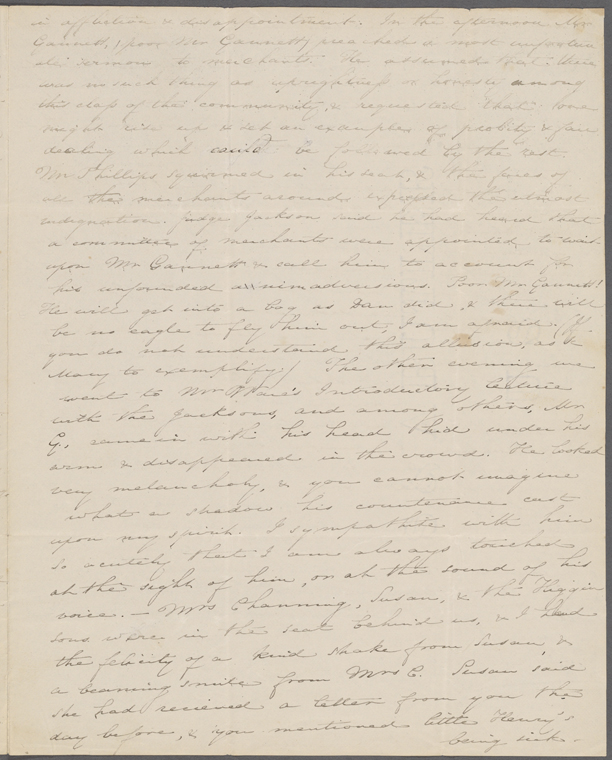 in affliction & disappointment. In the afternoon Mr
Gannett, (poor Mr Gannett) preached a most
sermon to merchants. He assumed that there
was no such thing as uprightness or honesty among
this class of the community, & requested that one
might rise up & set an example of probity & fair
dealing which could be followed by the rest.
Mr Phillips squirmed in his seat, & the faces of
all the merchants around expressed the utmost
indignation. Judge Jackson said he had heard that
a committee of merchants were appointed to wait
upon Mr Gannett & call him to account for
his unfounded animadversions. Poor Mr Gannett!
He will get into a bog as Dan did, & there will
be no eagle to fly him out, I am afraid. (If
you do not understand this allusion, ask
Mary to exemplify.) The other evening we
went to Mr Ware's Introductory lecture
with the Jacksons, and among others, Mr
G., came in with his head hid under his
arm & disappeared in the crowd. He looked
very melancholy, & you cannot imagine
what a shadow his countenance cast
upon my spirit. I sympathize with him
so acutely that I am always touched
at the sight of him, or at the sound of his
voice. — Mrs Channing, Susan, & the Higgin
sons were in the seat behind us, & I had
the felicity of a kind shake from Susan, &
a beaming smile from Mrs C. Susan said
she had received a letter from you the
day before, & you mentioned little Henry's
being sick.